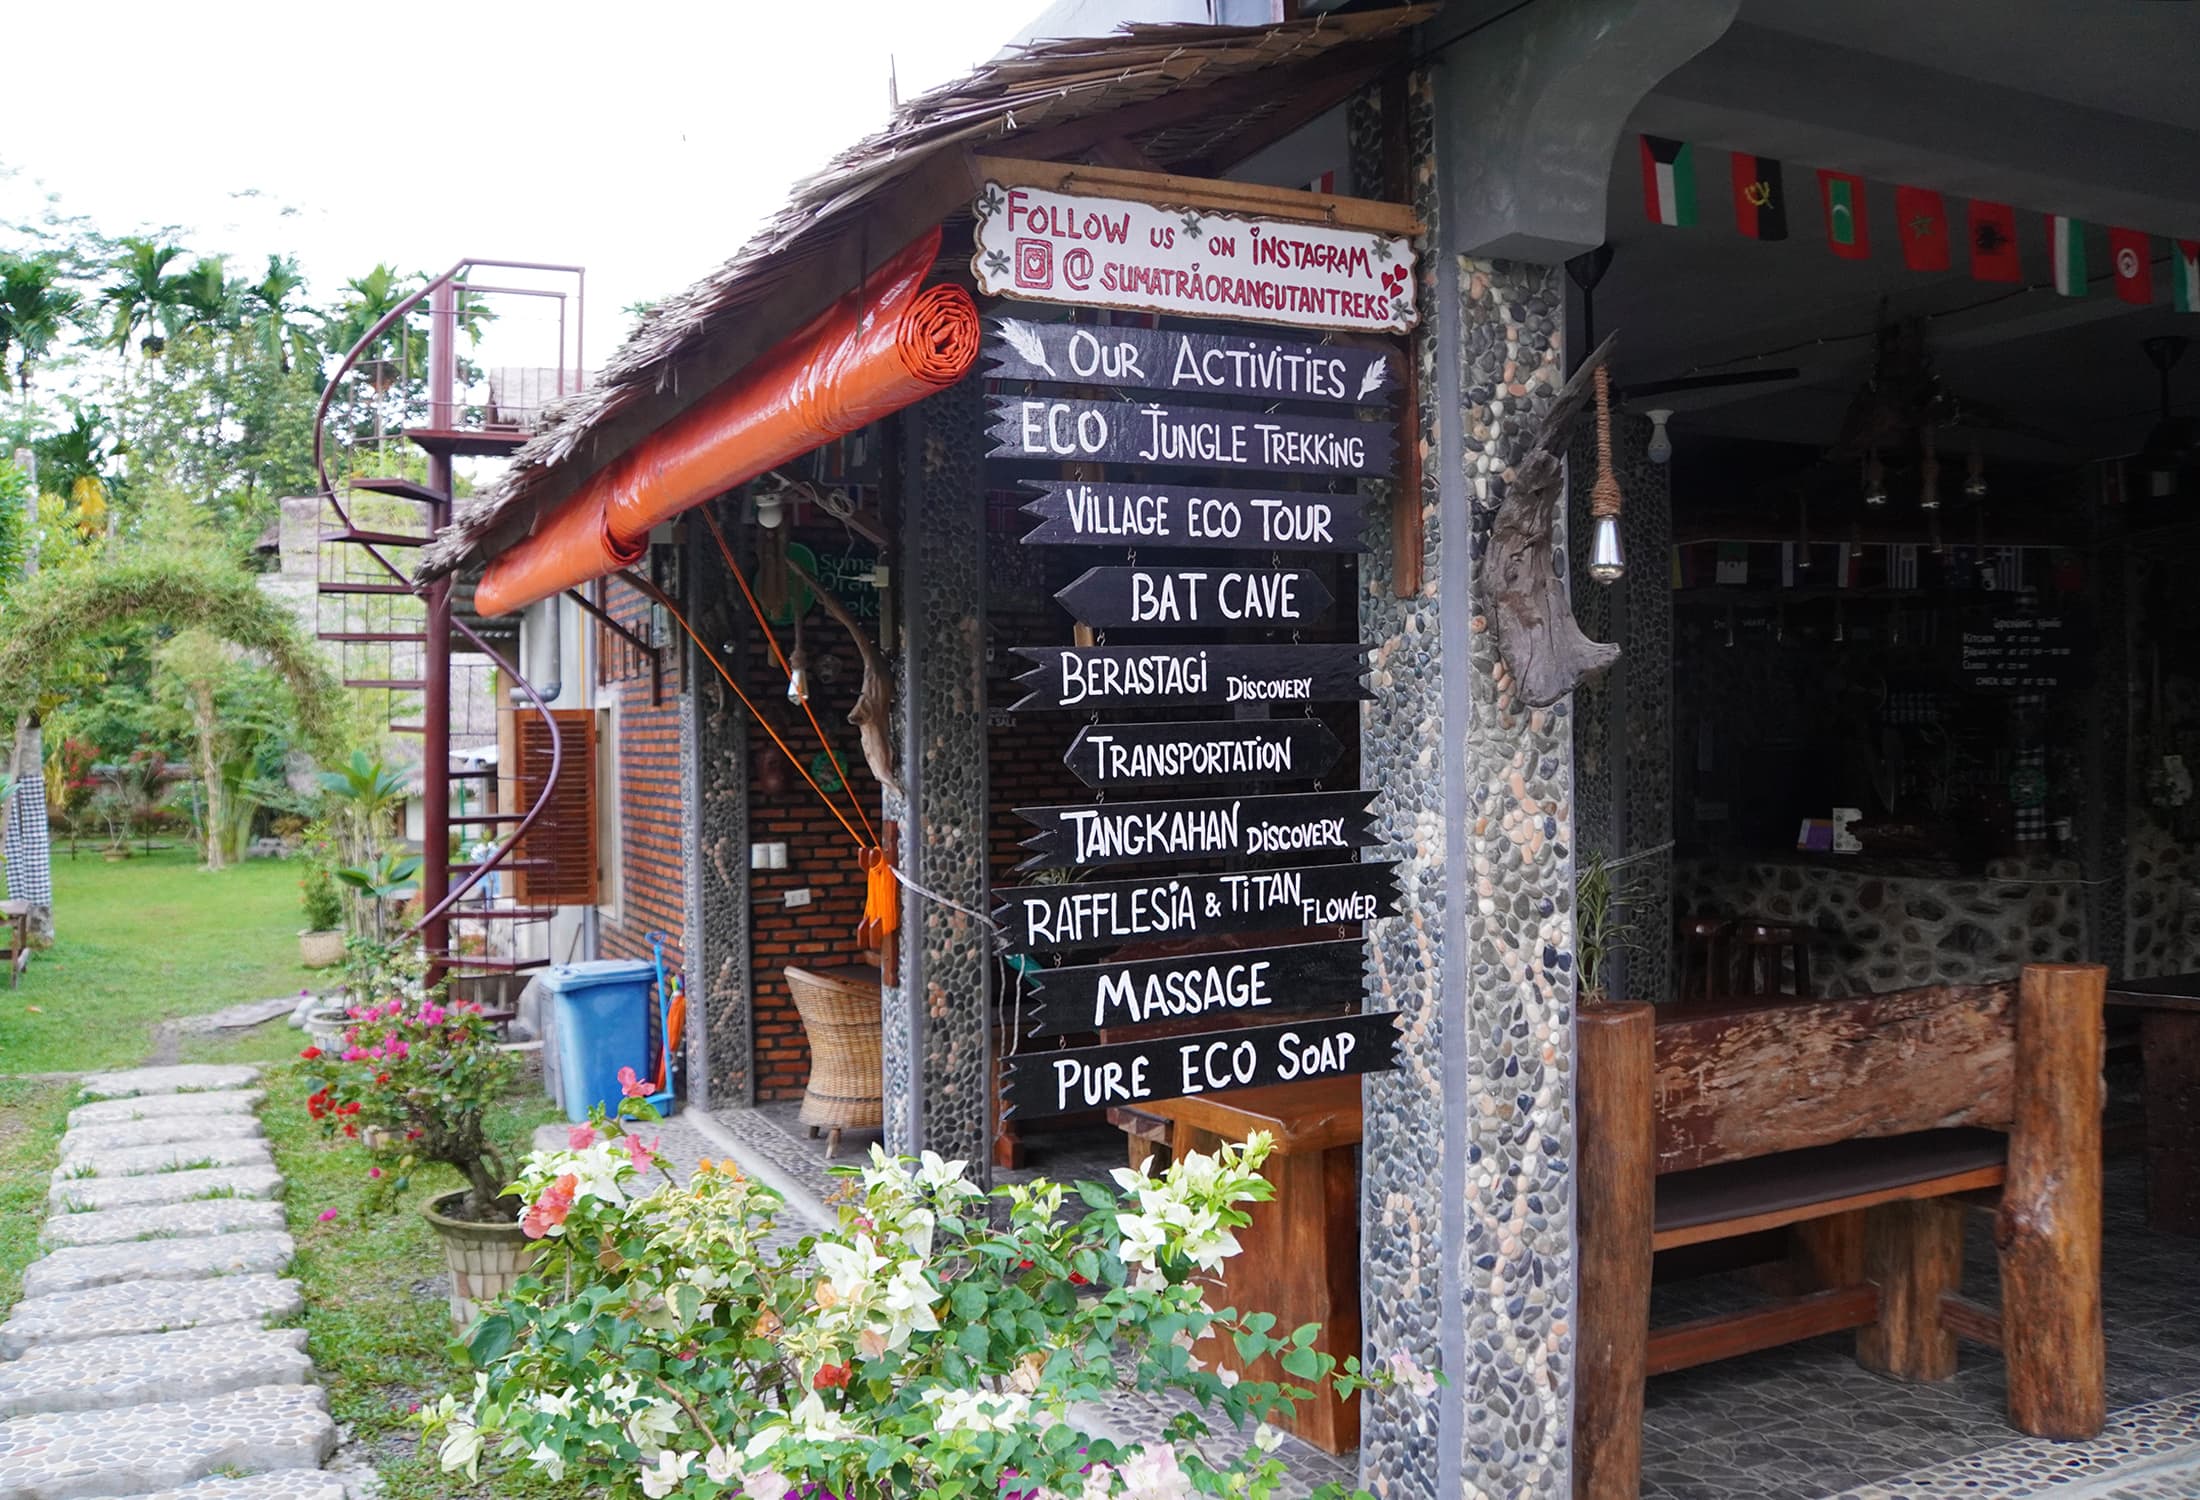 FOLLOW US ON INSTAGRAM
@SUMATRAORANGUTANTREKS
OUR ACTIVITIES
ECO JUNGLE TREKKING
VILLAGE ECO TOUR
BAT CAVE
BERASTAGI DISCOVERY
TRANSPORTATION
TANGKAHAN DISCOVERY
RAFFLESIA & TITAN FLOWER
MASSAGE
PURE ECO SOAP
KITCHEN AT
CHECK OUT AT